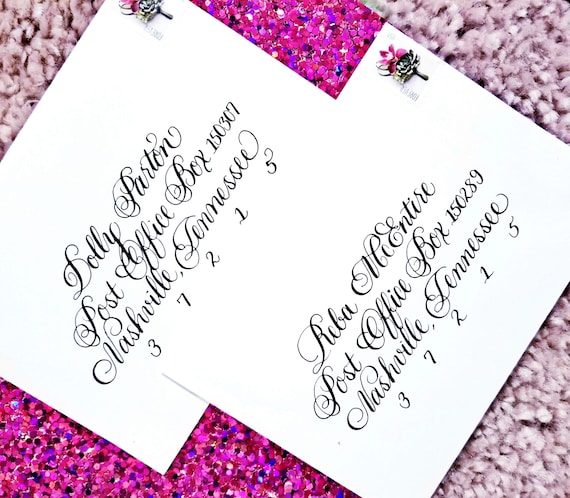 Dolly Parton
Post Office Box 150307
Nashville, Tennessee
3 7 2 1 5
Reba McEntire
Post Office Box 150289
Nashville, Tennessee
3 7 2 1 5